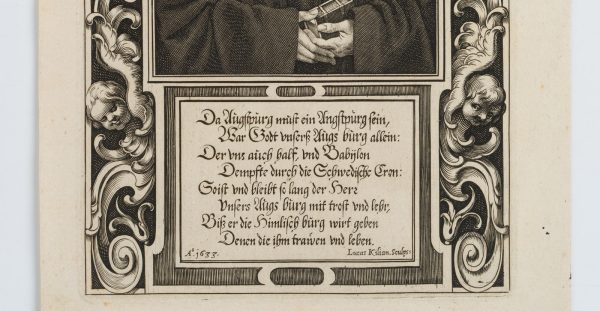 Da Augspurg must ein Angstpurg sein,
War Godt vnserß Augs burg allein:
Der vns auch half, vnd Babijlon
Dempfte durch die Schwedische Cron:
So ist vnd bleibt so lang der Herr
Vnsers Augs burg mit trost vnd lehr,
Biß er die Himlisch burg wirt geben
Denen die ihm trawen vnd leben.
Aº. 1633.
Lucas Kilian. Sculps: